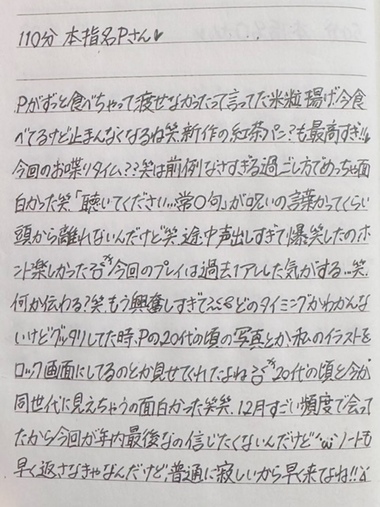 110分 本指名Pさん♥
Pがずっと食べちゃって痩せなかったって言ってた米粒揚げ今食
べてるけど止まんなくなるね笑、新作の紅茶パン?も最高すぎ!!
今回のお喋りタイム??笑は前例なさすぎる過ごし方でめっちゃ面
白かった笑「聴いてください…常〇句」が呪いの言葉かってくらい
頭から離れないんだけど笑 途中声出しすぎて爆笑したのホ
ント楽しかった 今回のプレイは過去1アレした気がする…笑、
何か伝わる?笑 もう興奮しすぎて どのタイミングかわかんな
いけどグッタリしてた時、Pの20代の頃の写真とか私のイラストを
ロック画面にしてるのとか見せてくれたよね 20代の頃と今が
同世代に見えちゃうの面白かった笑笑、12月すごい頻度で会って
たから今回が年内最後なの信じたくないんだけど ノートも
早く返さなきゃなんだけど、普通に寂しいから早く来てよね!!